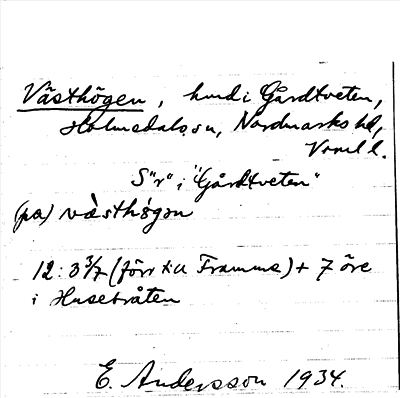 Västhögen, hmd i Gårdtveten,
Holmedals sn, Nordmarks hd,
Vrml l.
S"r" i "Gårdtveten"
(pa) væ̀sthö́gən
12: 3 3/7 (förr till Framme) + 7 öre
i Husetvåten
E. Andersson 1934.